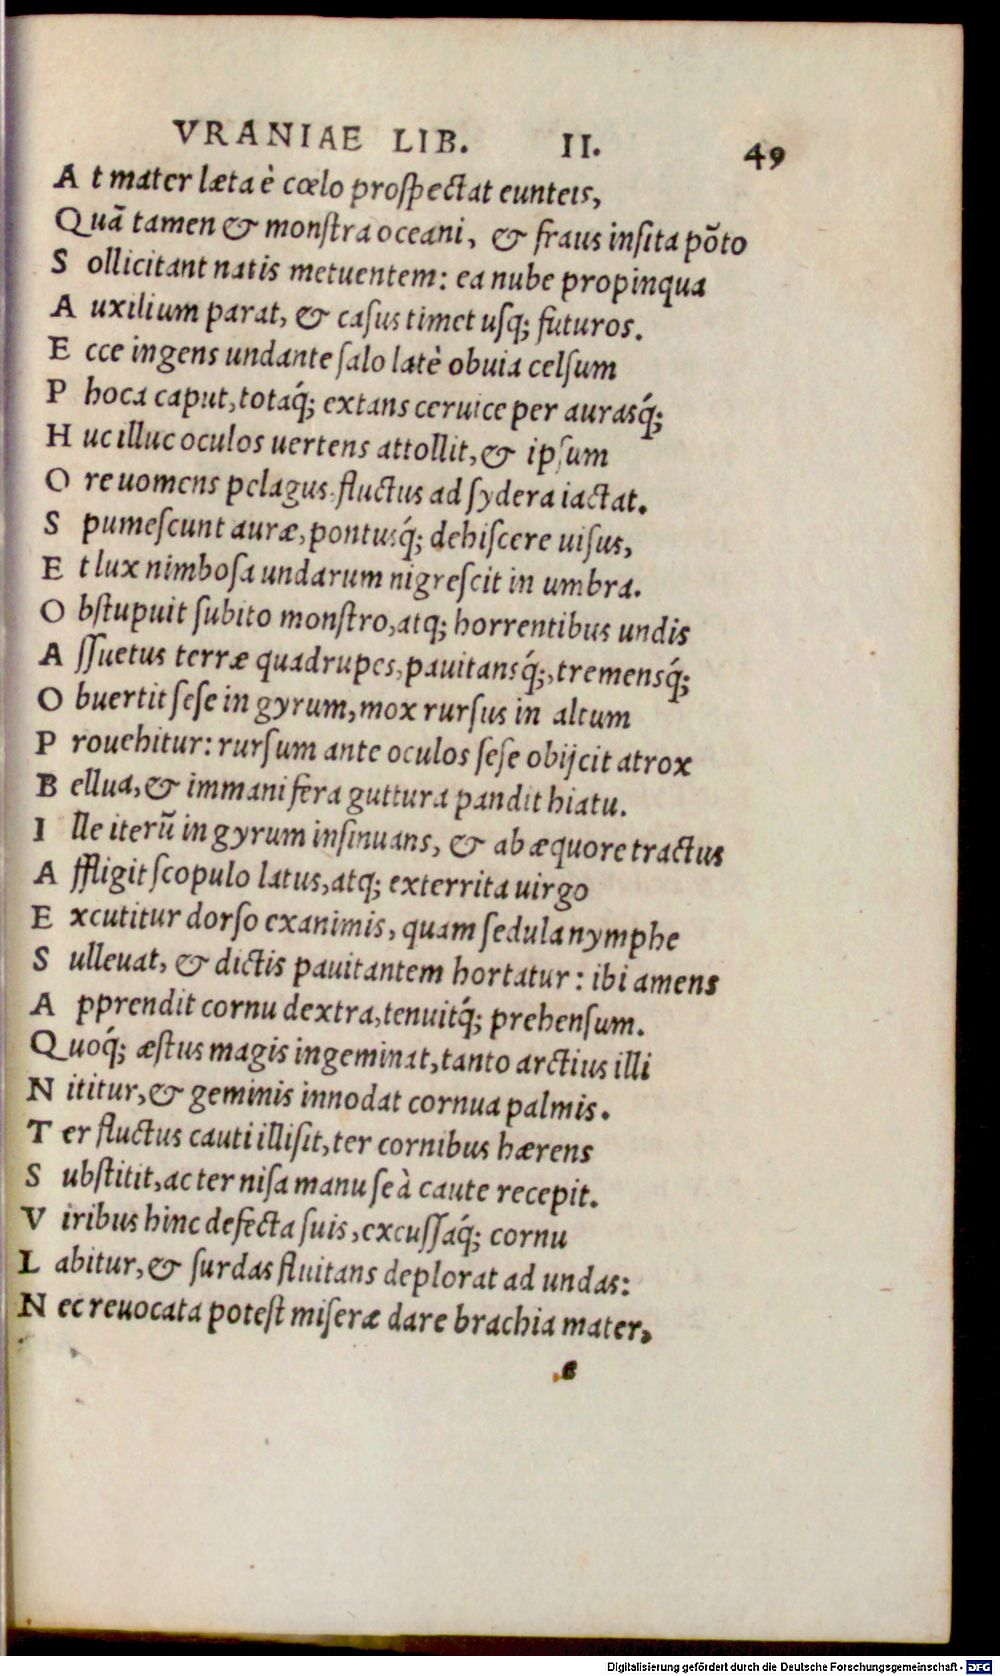 VRANIAE LIB. II. 49
A t mater læta è cœlo proſpectat eunteis,
Quã tamen & monſtra oceani, & fraus inſita põto
S ollicitant natis metuentem: ea nube propinqua
A uxilium parat, & caſus timet uſq; futuros.
E cce ingens undante ſalo latè obuia celſum
P hoca caput, totaq́; extans ceruice per aurasq́;
H uc illuc oculos uertens attollit, & ipſum
O re uomens pelagus, fluctus ad ſydera iactat.
S pumeſcunt auræ, pontusq́; dehiſcere uiſus,
E t lux nimboſa undarum nigreſcit in umbra.
O bſtupuit ſubito monſtro, atq; horrentibus undis
A ſſuetus terræ quadrupes, pauitansq́;, tremensq́;
O buertit ſeſe in gyrum, mox rurſus in altum
P rouehitur: rurſum ante oculos ſeſe obijcit atrox
B ellua, & immani fera guttura pandit hiatu.
I lle iterũ in gyrum inſinuans, & ab æquore tractus
A ffligit ſcopulo latus, atq; exterrita uirgo
E xcutitur dorſo exanimis, quam ſedula nymphe
S ulleuat, & dictis pauitantem hortatur: ibi amens
A pprendit cornu dextra, tenuitq́; prehenſum.
Quoq́; æſtus magis ingeminat, tanto arctius illi
N ititur, & geminis innodat cornua palmis.
T er fluctus cauti illiſit, ter cornibus hærens
S ubſtitit, ac ter niſa manu ſe à caute recepit.
V iribus hinc defecta ſuis, excuſſaq́; cornu
L abitur, & ſurdas fluitans deplorat ad undas:
N ec reuocata poteſt miſeræ dare brachia mater,
Digitalisierung gefördert durch die Deutsche Forschungsgemeinschaft - DFG